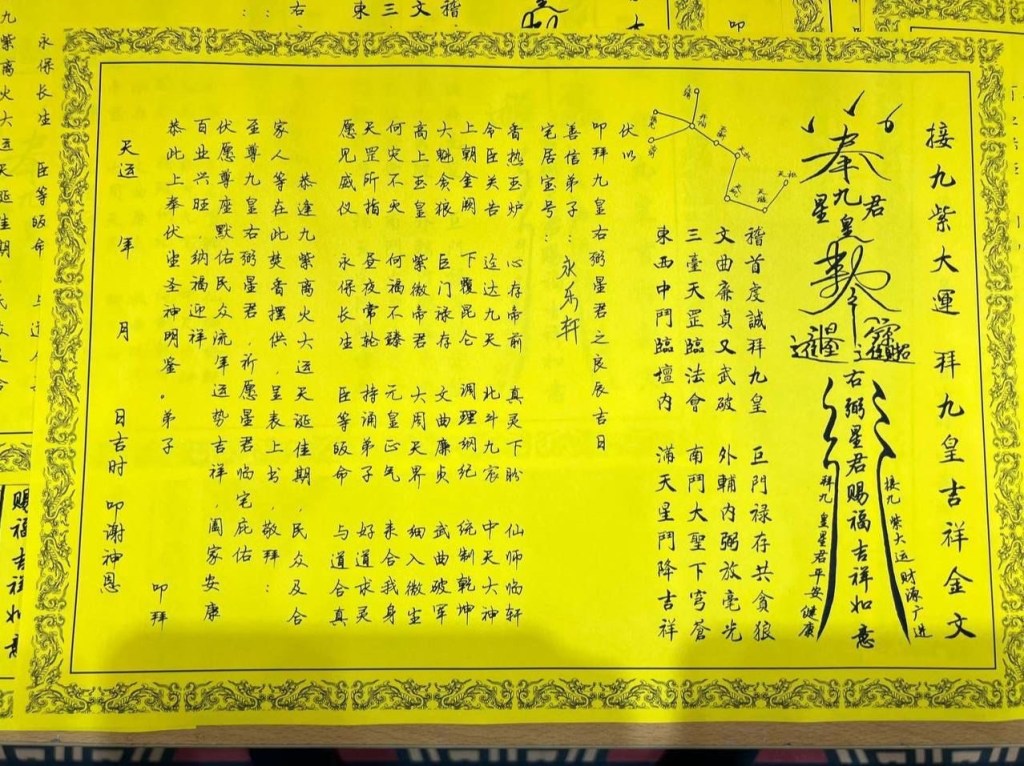 接九紫大運 拜九皇吉祥金文
奉
九皇
星君
勅令
右弼星君賜福吉祥如意
接九紫大运财源广进
拜九皇星君平安健康
稽首虔誠拜九皇 巨門禄存共貪狼
文曲亷貞又武破 外輔内弼放毫光
三臺天罡臨法會 南鬥大聖下穹蒼
東西中鬥臨壇内 滿天星鬥降吉祥
伏以
叩拜九皇右弼星君之良辰吉日
善信弟子：永乐轩
宅居宝号：
香热玉炉 心存帝前 真灵下盼 仙师临轩
令臣关告 迳达九天 北斗九宸 中天大神
上朝金阙 下覆昆仑 调理纲纪 统制乾坤
大魁贪狼 巨门禄存 文曲廉贞 武曲破军
高上玉皇 紫微帝君 大周天界 细入微尘
何灾不灭 何福不臻 元皇正气 来合我身
天罡所指 昼夜常轮 持诵弟子 好道求灵
愿见威仪 永保长生 臣等皈命 与道合真
恭逢九紫离火大运天诞佳期，民众及合
家人等在此焚香摆供，呈表上书，敬拜：
至尊九皇右弼星君，祈愿星君临宅庇佑
伏愿尊座默佑民众流年运势吉祥，阖家安康
百业兴旺，纳福迎祥
恭此上奉伏望圣神明鉴。弟子 叩拜
天运 年 月 日吉时 叩谢神恩